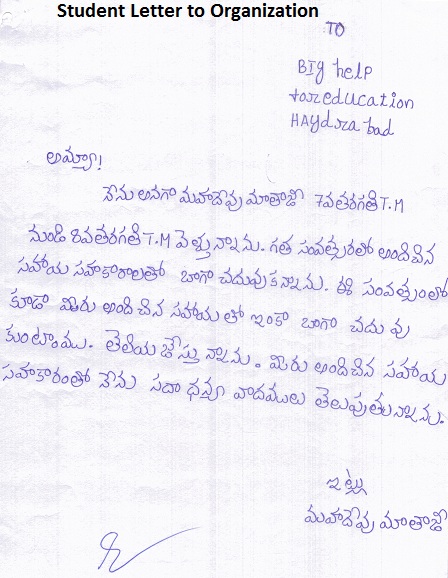 Student Letter to Organization
TO
BIg help
for education
HAydra bad
అమ్మా!
నేను అనగా మహాదేవు మాతాజీ 7వతరగతి T.M
నుండి 8వతరగతి T.M వెళ్తున్నాను. గత సంవత్సరంలో అందించిన
సహాయ సహకారాలతో బాగా చదువుకన్నాను. ఈ సంవత్సంలో
కూడా మీరు అందించిన సహాయంతో ఇంకా బాగా చదువు
కుంటాము. తెలియజేస్తున్నాను. మీరు అందించిన సహాయ
సహకారంతో నేను సదా ధన్యవాదములు తెలుపుతున్నాను.
ఇట్లు
మహాదేవు మాతాజీ